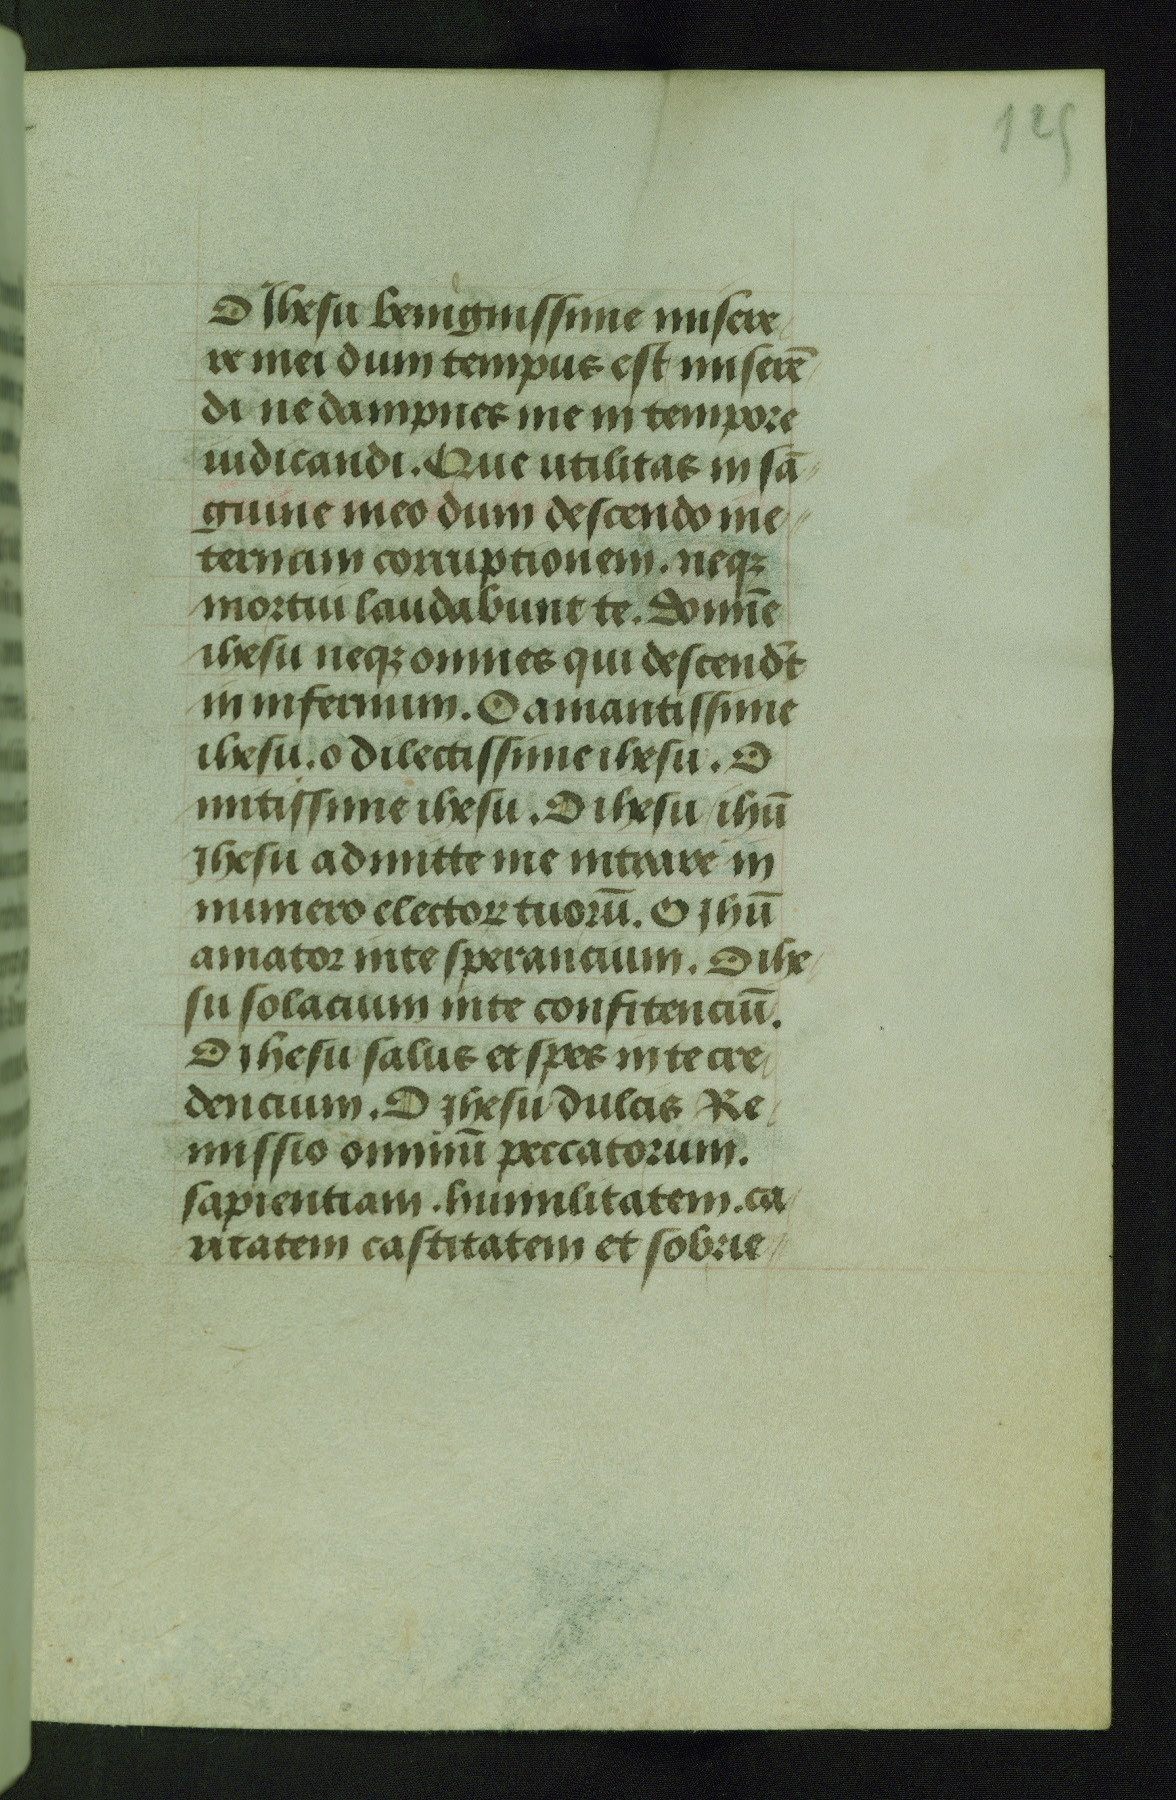 125
O Ihesu benignissime misere
re mei dum tempus est miserē
di ne dampnes me in tempore
iudicandi. Que utilitas in sā
guine meo dum descendo ine
ternam corruptionem. neqꝫ
mortui laudabunt te. Domīe
ihesu neqꝫ omnes qui descendt̄
in infernum. O amantissime
ihesu. o dilectissime ihesu. O
mitissime ihesu. O ihesu ihū
Jhesu admitte me intrare in
numero electoꝝ tuorū. O Jhū
amator inte sperancium. O ihe
su solacium inte confitenciū.
O Jhesu salus et spes in te cre
dencium. O Jhesu dulcis Re
missio omniū peccatorum.
sapientiam. humilitatem. ca
ritatem castitatem et sobrie